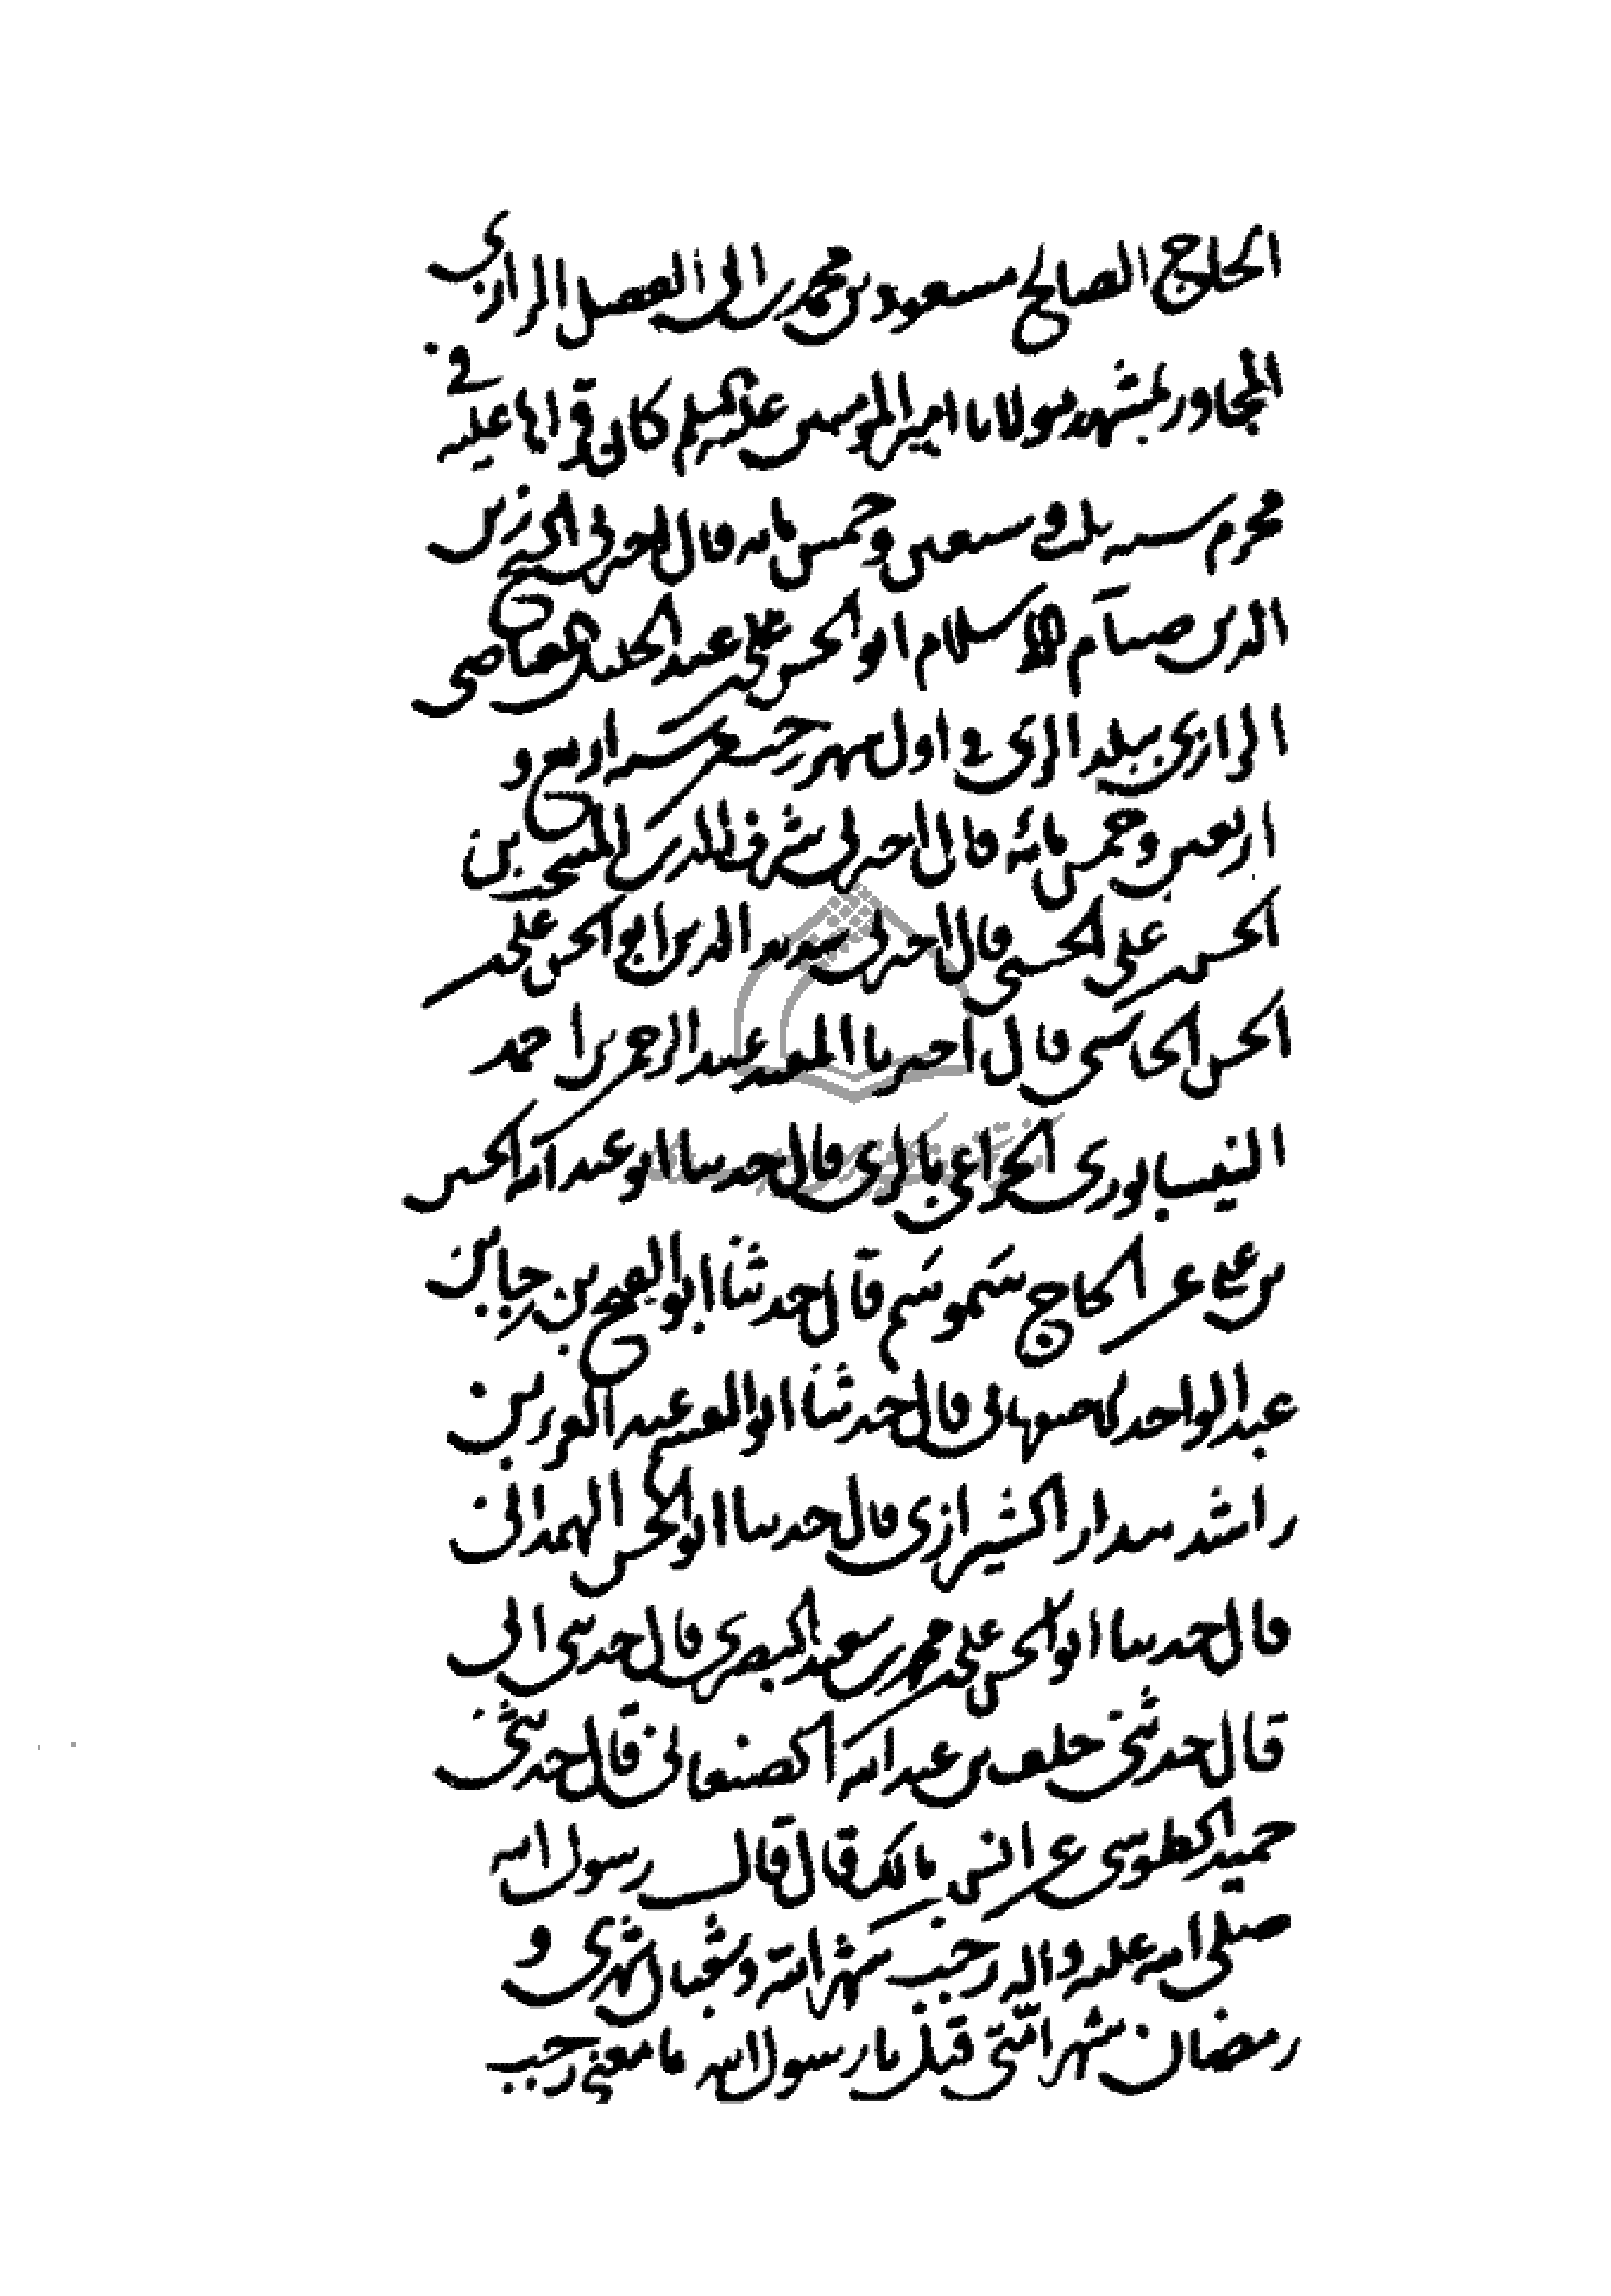 الحاج الصالح مسعود بن محمد بن ابى الفضل الرازي
المجاور بمشهد مولانا امير المومنين عليه السلم كان قراها عليه في
محرم سنه ثلث و سبعين وخمس مايه قال اخبرنى الشيخ زين
الدين صيام الاسلام ابو الحسن على بن عبد الجليل العياضى
الرازي ببلد الرى في اول شهر رجب من سنه اربع و
اربعين وخمس مائه قال اخبرنى شرف الدين المنتجب بن
الحسن بن على الحسنى قال اخبرنى سديد الدين ابو الحسن على بن
الحسن الجاسبى قال اخبرنا المفيد عبد الرحمن بن احمد
النيسابورى الخزاعى بالرى قال حدثنا ابو عبد الله الحسين
بن على عن الحاج سموسم قال حدثنا ابو الفتح بن رجا بن
عبد الواحد الاصبهانى قال حدثنا ابو القسم عبد العزيز بن
راشد بندار الشيرازى قال حدثنا ابو الحسن الهمدانى
قال حدثنا ابو الحسن على بن محمد بن سعيد البصرى قال حدثنى ابى
قال حدثنى خلف بن عبد الله الصنعانى قال حدثنى
حميد الطوسى عن انس بن مالك قال قال رسول الله
صلى الله عليه واله رجب شهر الله وشعبان شهرى و
رمضان شهر امتى قيل يا رسول الله ما معنى رجب